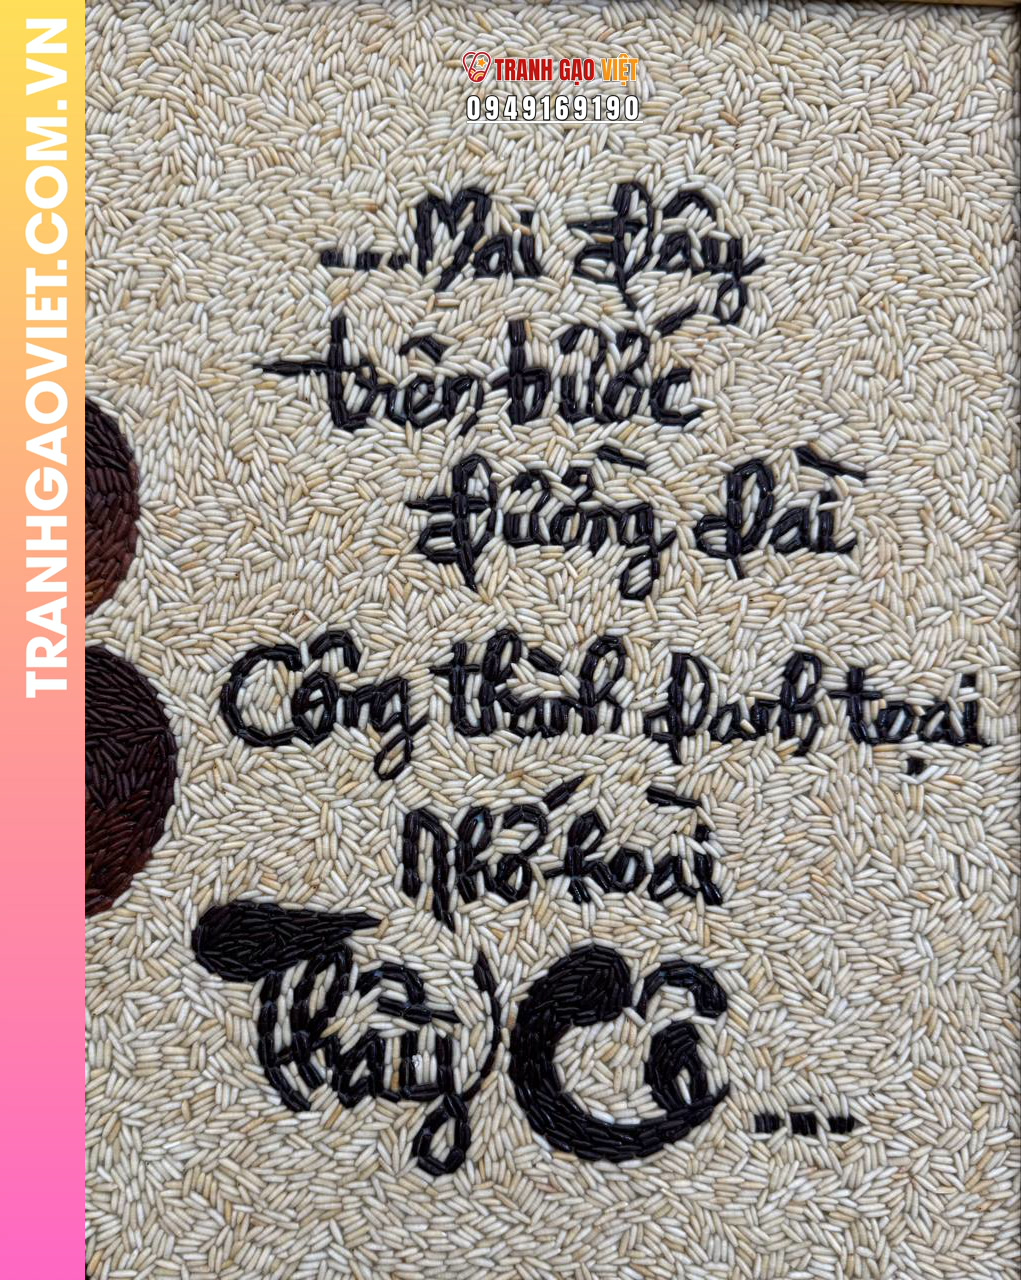 TRANHGAOVIET.COM.VN
TRANH GẠO VIỆT
0949169190
....Mai đây
trên bước
đường dài
Công thành danh toại
Nhớ hoài
Thầy Cô ...